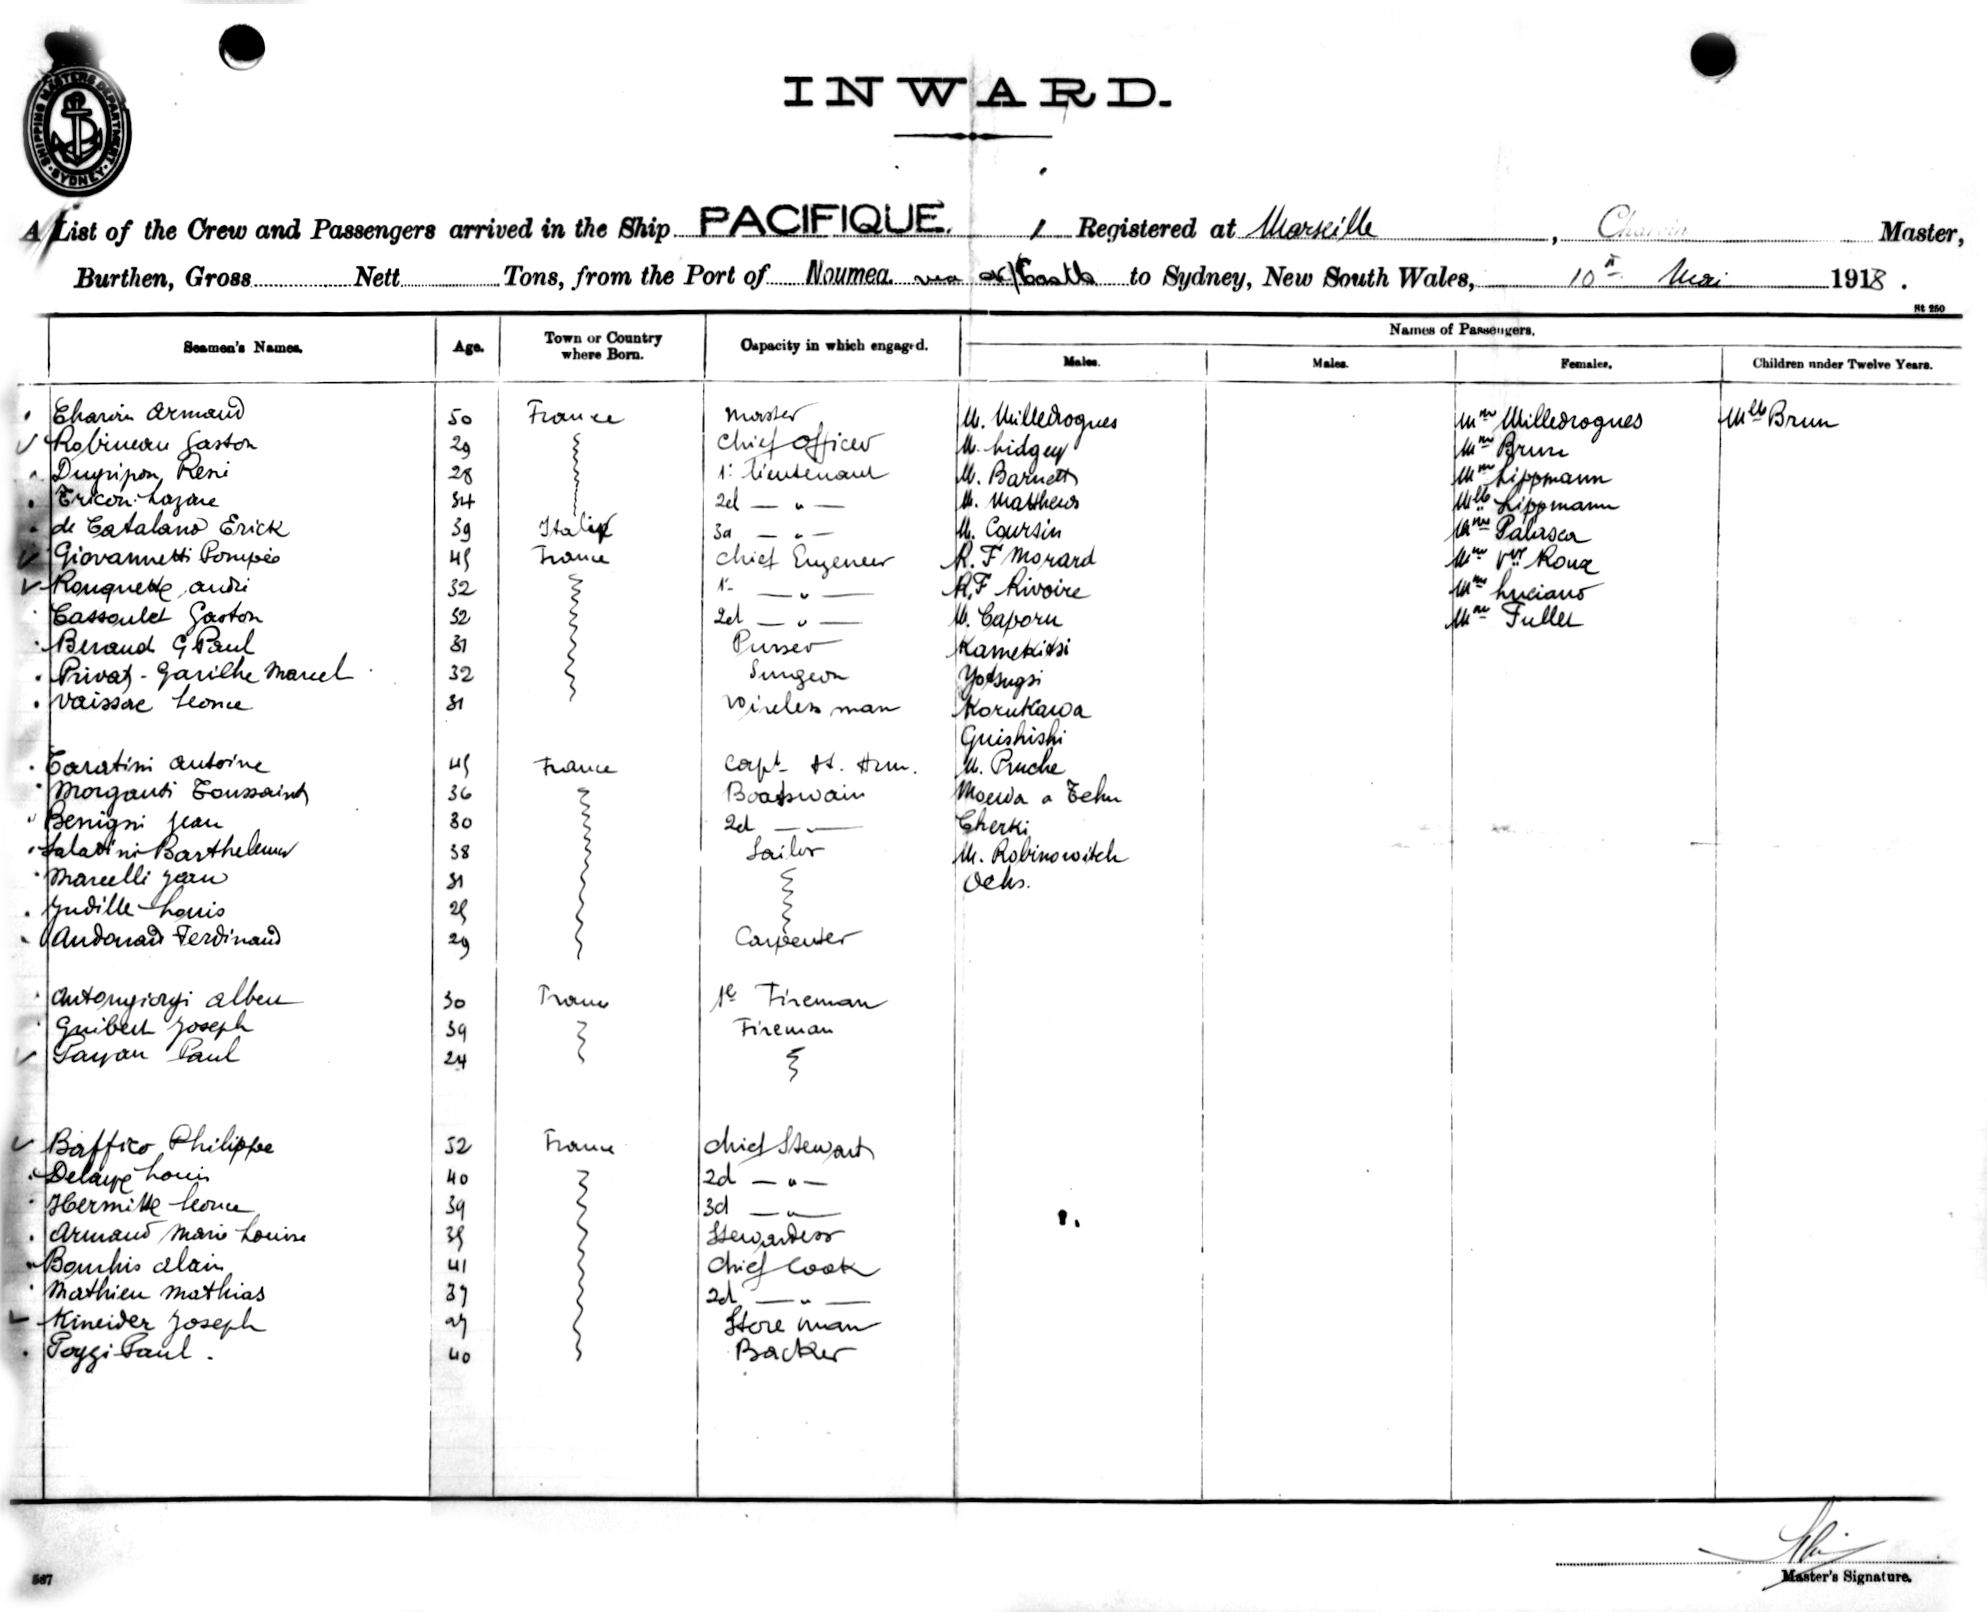 SHIPPING MASTERS DEPARTMENT SYDNEY
INWARD.
A List of the Crew and Passengers arrived in the Ship PACIFIQUE. Registered at Marseille, Charvin Master,
Burthen, Gross Nett Tons, from the Port of Noumea via N/Castle to Sydney, New South Wales, 10th Mai 1918.
St 250
Seamen's Names. Age. Town or Country where Born. Capacity in which engaged. Names of Passengers.
Males. Males. Females. Children under Twelve Years.
Charvin Armand 50 France Master M. Milledrogues Mme Milledrogues Mlle Brun
Robineau Gaston 29 Chief Officer M. Lidgey Mme Brun
René 28 1r lieutenant M. Barnett Mme Lippmann
Lazare 34 2d — " — M. Matthews Mlle Lippmann
de Catalano Erick 39 Italie 3d — " — M. Coursin Mme Palasca
Giovannetti Pompée 45 France Chief Engeneer R. F Morard Mme Vve Roux
Rouquette André 32 1r — " — R. F Rivoire Mme Luciano
Cassoulet Gaston 52 2d — " — M. Caporn Mme Fullet
Beraud G Paul 31 Purser Kamekitsi
Privat-Garilhe Marcel 32 Surgeon Yotsugsi
Vaissae Leonce 31 Wireless man Korukawa
Guishishi
Taratini Antoine 45 France Capt. M. Pruche
Morganti Toussaint 36 Boatswain Moewa a Tehu
Benigni Jean 30 2d — " — Cherki
Saladini Barthelemy 38 Sailor M. Robinowitch
Marcelli Jean 31 Ochs.
Louis 25
Audouard Ferdinand 29 Carpenter
Antongiorgi Albert 30 France 1e Fireman
Guibert Joseph 39 Fireman
Payan Paul 24
Baffico Philippe 52 France Chief Stewart
Delaye Louis 40 2d — " —
Hermitte Leonce 39 3d — " —
Armand Marie Louise 35 Stewardess
Bourhis Alain 41 Chief Cook
Mathieu Mathias 37 2d — " —
Kineider Joseph 27 Store man
Poggi Paul. 40 Backer
Master's Signature.
567